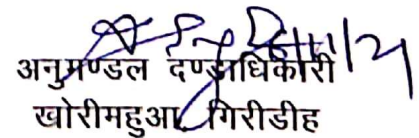 अनुमण्डल दण्डाधिकारी
खोरीमहुआ, गिरीडीह